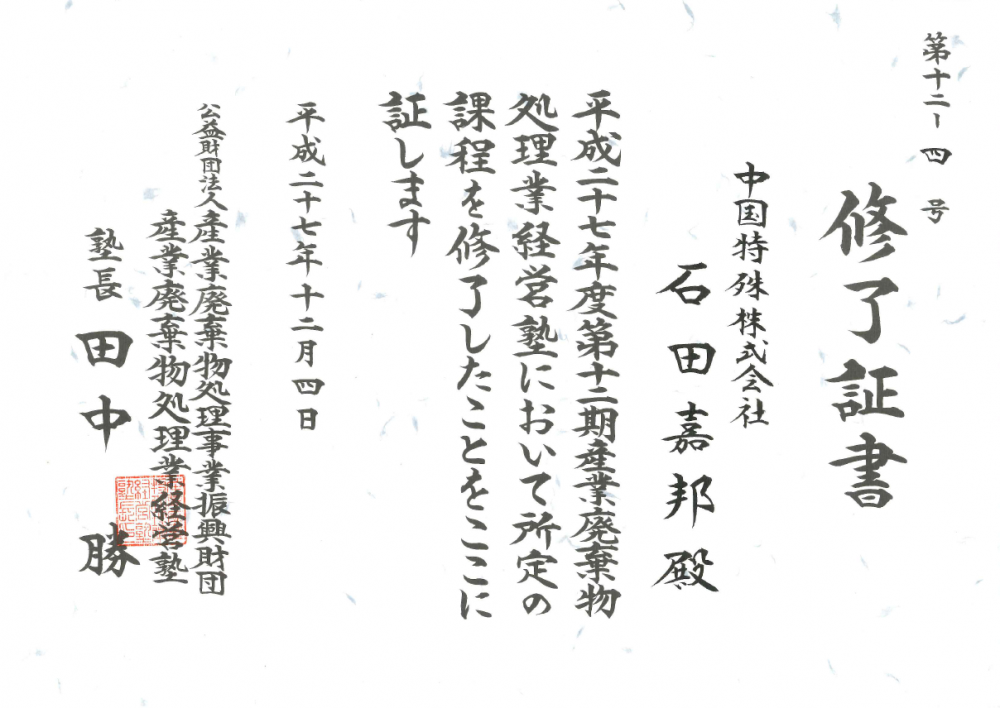 第十二ー四号
修了証書
中国特殊株式会社
石田嘉邦殿
平成二十七年度第十二期産業廃棄物
処理業経営塾において所定の
課程を修了したことをここに
証します
平成二十七年十二月四日
公益財団法人産業廃棄物処理事業振興財団
産業廃棄物処理業経営塾
塾長田中勝